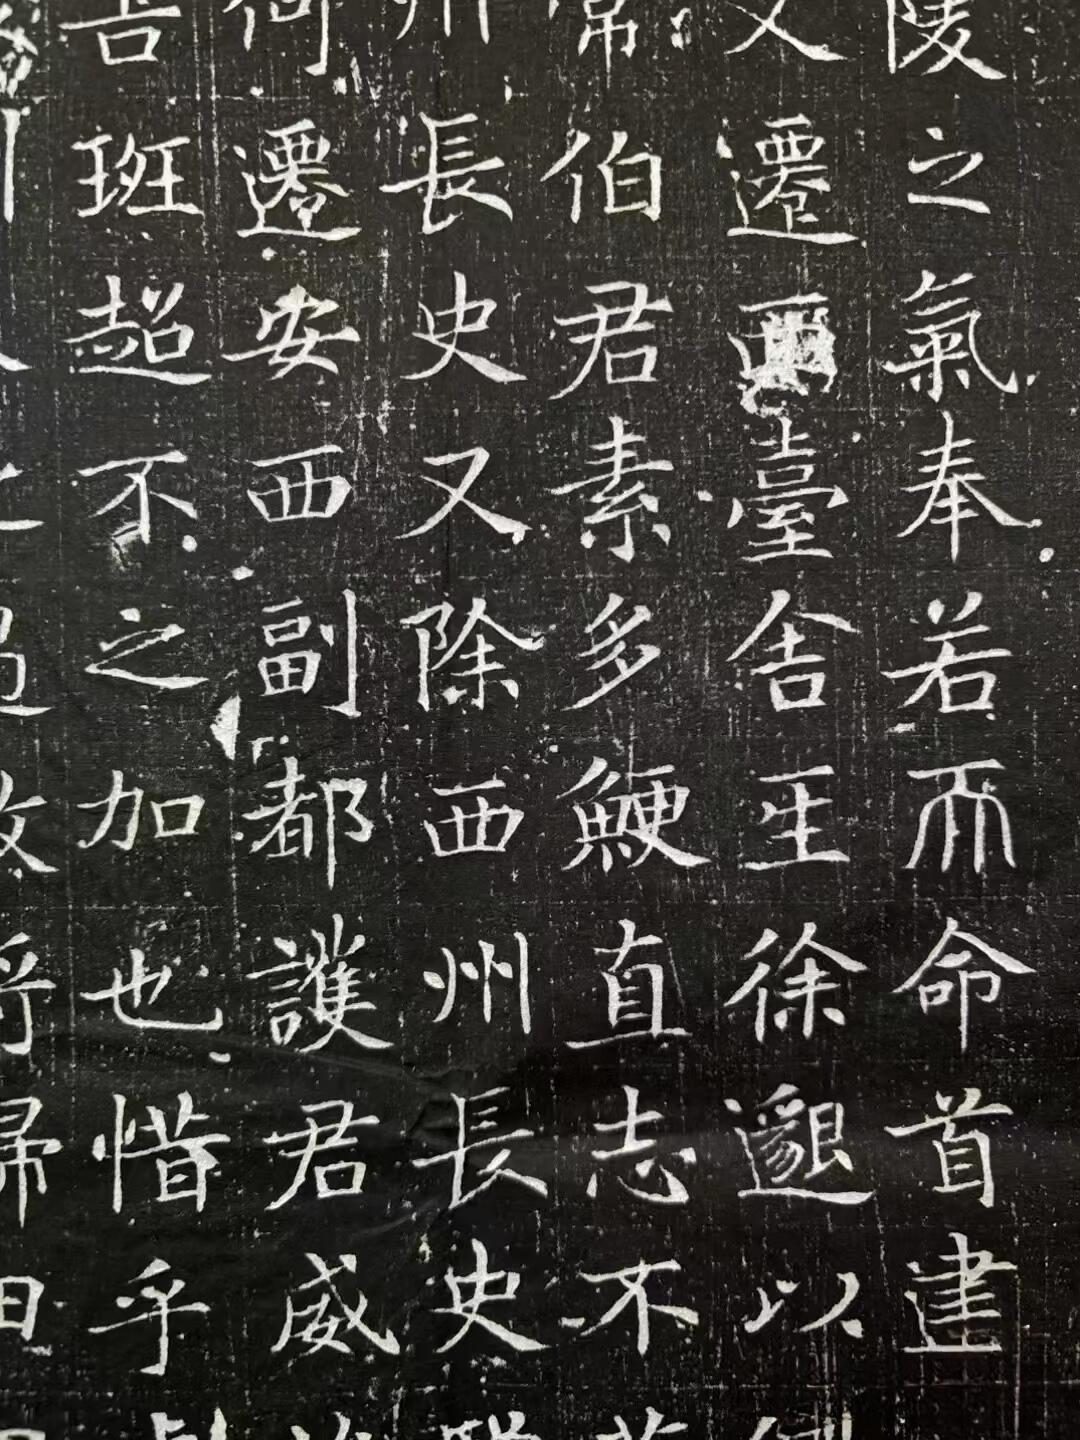 陵之氣奉若而命首建
又遷西臺舍生徐邈以
常伯君素多鯁直志不
州長史又除西州長史
何遷安西副都護君威
吾班超不之加也惜乎